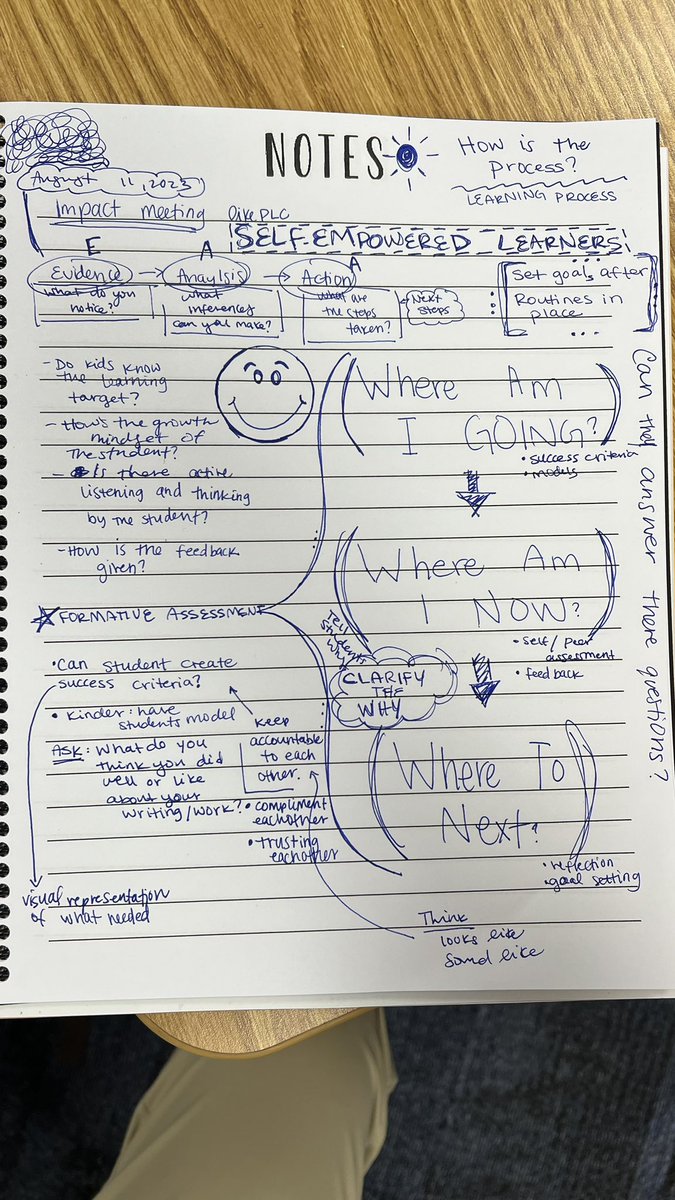 NOTES
How is the
Process?
LEARNING PROCESS
August 11, 2023
Impact Meeting
like PLC
SELF-EMPOWERED LEARNERS
E
A
A
Evidence → Anaylsis → Action
What do you
notice?
what
inferences
can you make?
What are
the steps
taken?
Next
steps
Set goals after
Routines in
place
- Do kids know
the learning
target?
- How's the growth
mindset of
the student?
- Is there active
listening and thinking
by the student?
- How is the feedback
given?
FORMATIVE ASSESSMENT
Where Am
I GOING?
• success criteria
• models
Where Am
I NOW?
• self/peer
assessment
• feedback
Tell
students
why
CLARIFY
THE
WHY
Where To
Next?
• reflection
• goal setting
Can they answer there questions?
• Can student create
success criteria?
• Kinder: have
students model
ASK: What do you
think you did
well or like
about your
writing/work?
keep
accountable
to each
other.
• compliment
eachother
• trusting
eachother
visual representation
of what needed
Think
looks like
sound like